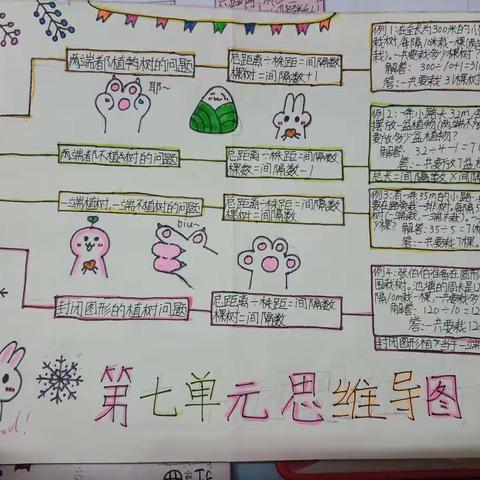 两端都植树的问题
总距离÷株距=间隔数
棵树=间隔数+1
例1:在全长为300米的小
栽树,每隔10米栽一棵(两
栽)。一共要栽多少棵树?
解答:300÷10+1=31
答:一共要栽31棵树
耶~
两端都不植树的问题
总距离÷株距=间隔数
棵数=间隔数-1
例2:一条小路长32m,
摆放一盆植物(两端不放
要放多少盆植物?
解答:32÷4-1=7
答:一共要放7盆
总长=间隔数×间隔
一端植树,一端不植树的问题
总距离÷株距=间隔数
棵树=间隔数
例3:有一条35m的小路,
要在路旁栽一排树,每隔5
树(一端栽,一端不栽)。
少棵?解答:35÷5=7
答:一共要栽7棵。
biu~
封闭图形的植树问题
总距离÷株距=间隔数
棵树=间隔数
例4:张伯伯准备在圆形
围栽树,池塘的周长是12
隔10m栽一棵,一共要栽多
解答:120÷10=12
答:一共要栽12
封闭图形相当于一端
第七单元思维导图